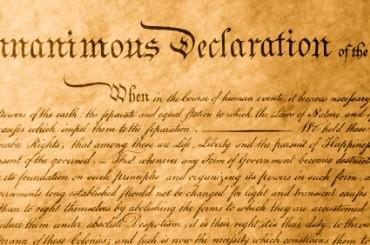 nanimous Declaration of the
When in the Course of human events, it becomes necessary
powers of the earth, the separate and equal station to which the Laws of Nature and of
causes which impel them to the separation. We hold these
nable Rights, that among these are Life, Liberty and the pursuit of Happiness
onsent of the governed, — That whenever any Form of Government becomes destructi
its foundation on such principles and organizing its powers in such form, as
vernments long established should not be changed for light and transient causes
than to right themselves by abolishing the forms to which they are accustomed
educe them under absolute Despotism, it is their right, it is their duty, to thro
erance of these Colonies; and such is now the necessity which constrains them